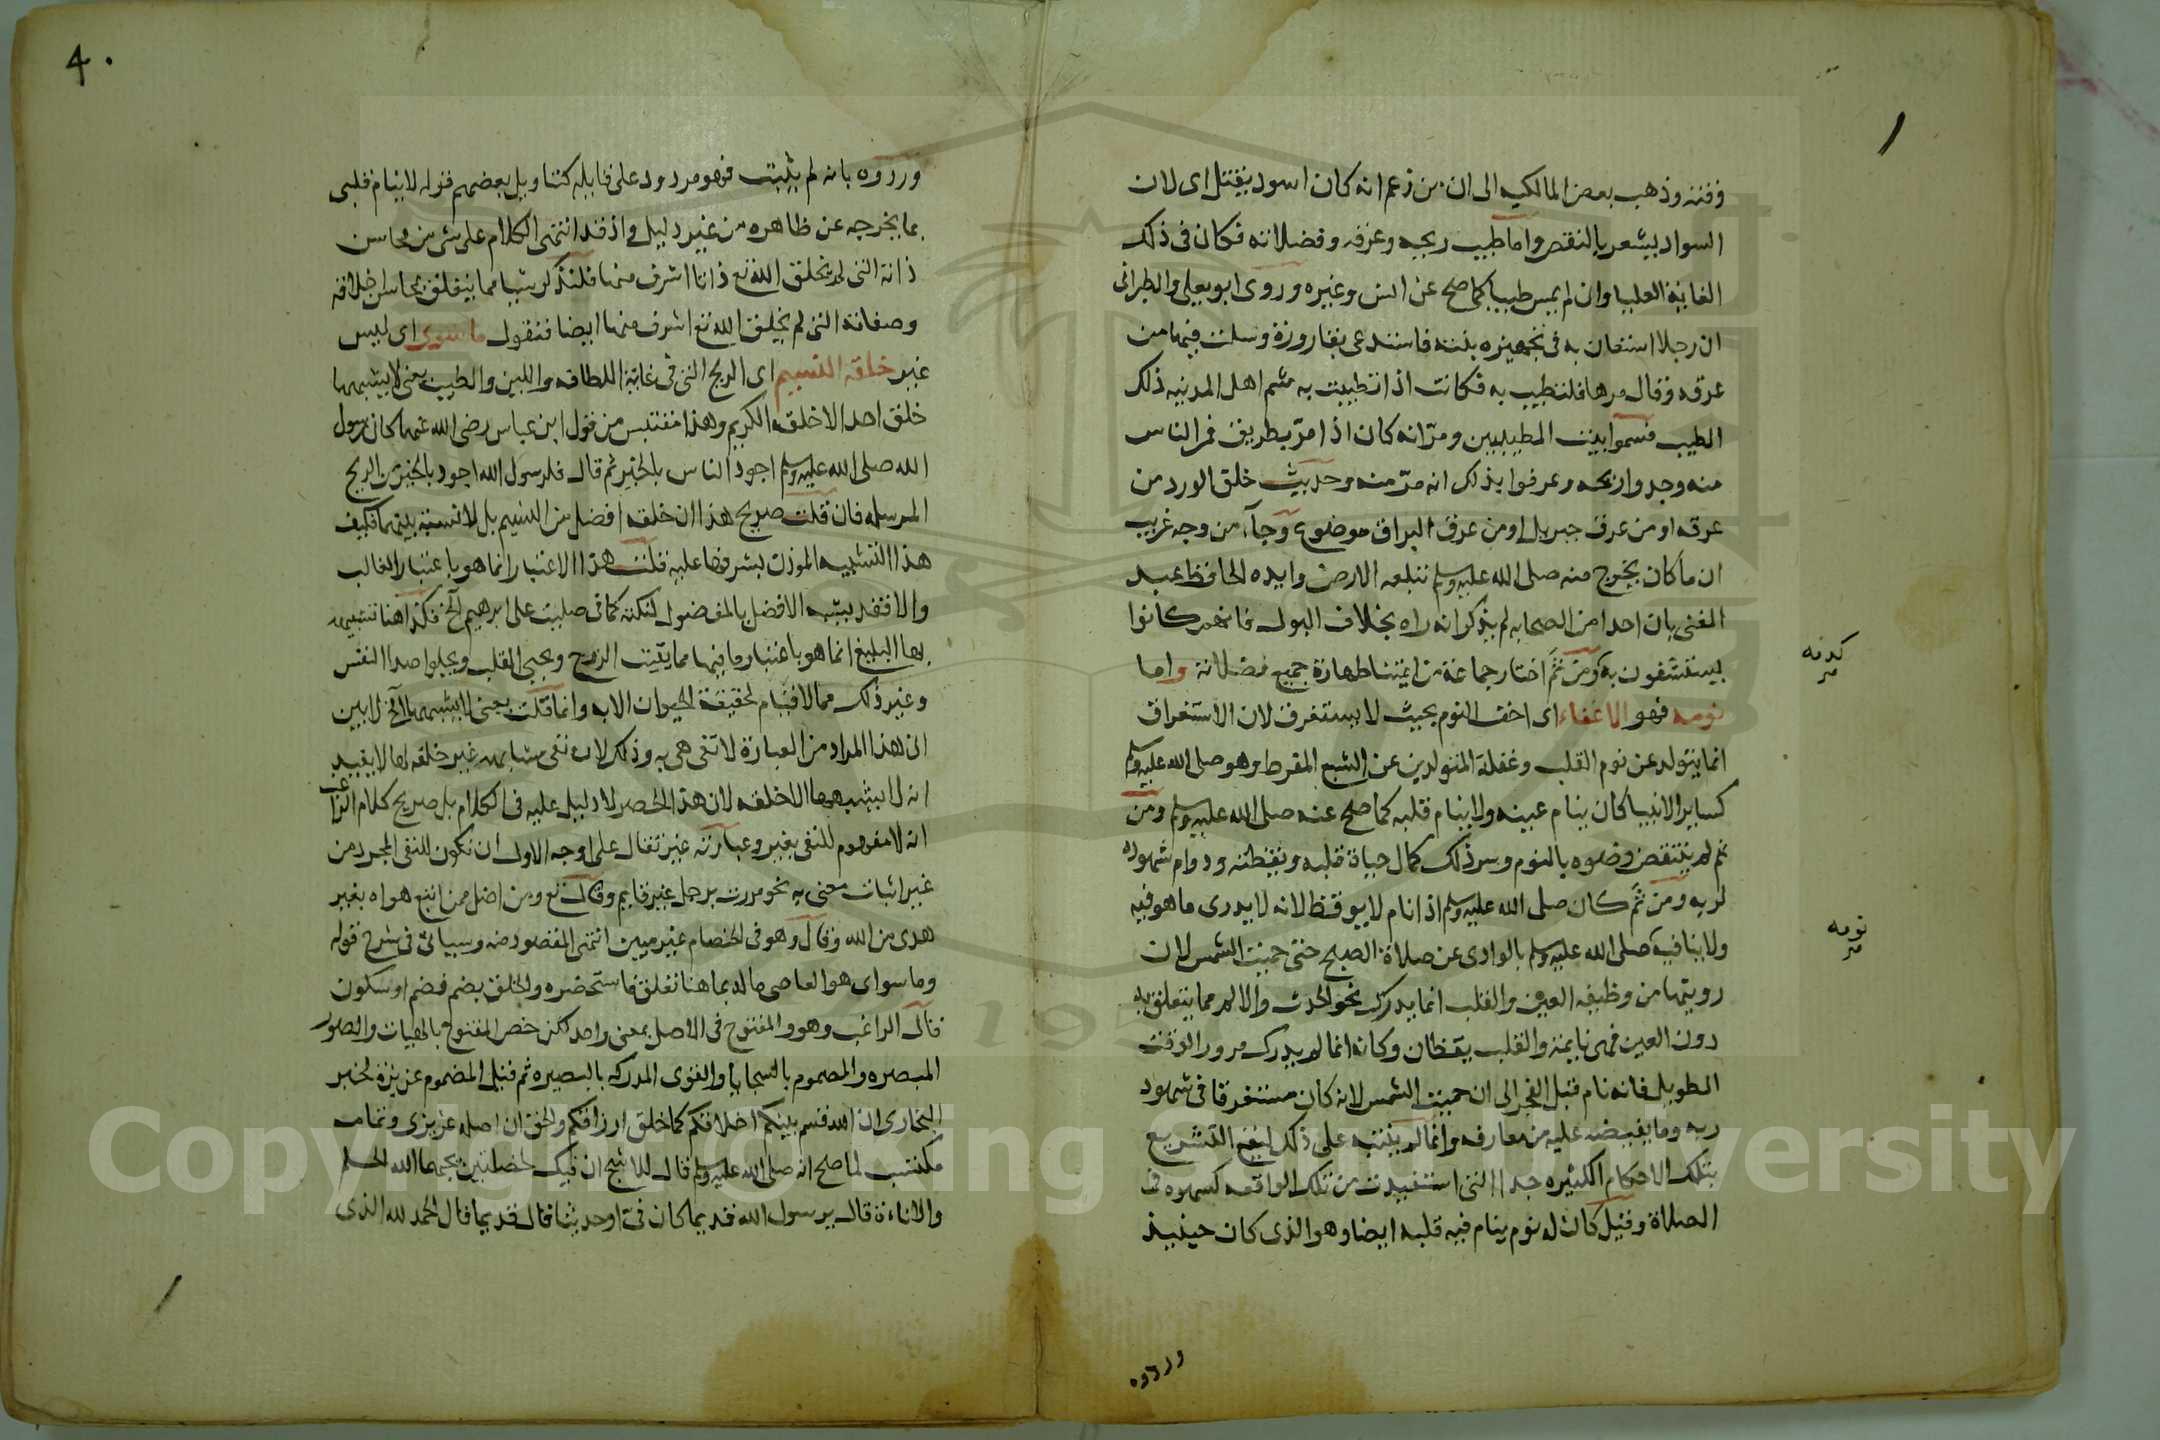 وفتنه وذهب بعض المالكيه الى ان من زعم انه كان اسود يقتل اى لان
السواد يشعر بالنقص واما طيب ريحه وعرقه وفضلاته فكان فى ذلك
الغاية العليا وان لم يمس طيبا كما صح عن انس وغيره وروى ابو يعلى والطبرانى
ان رجلا استعان به فى تجهيزه بنته فاستدعى بقارورة وسلت فيها من
عرقه وقال مرها فلتطيب به فكانت اذا تطيبت به شم اهل المدينه ذلك
الطيب فسموا بيت المطيبين ومر انه كان اذا مر بطريق فمر الناس
منه وجدوا ريحه وعرفوا بذلك انه مر منه وحديث خلق الورد من
عرقه او من عرق جبريل او من عرق البراق موضوع وجآء من وجه غريب
ان ما كان يخرج منه صلى الله عليه وسلم تبتلعه الارض وايده الحافظ عبد
الغنى بان احدا من الصحابه لم يذكر انه راه بخلاف البول فانهم كانوا
يستشفون به ومن ثم اختار جماعة من ايمتنا طهارة جميع فضلاته واما
نومه فهو الاغفاء اى اخف النوم بحيث لا يستغرق لان الاستغراق
انما يتولد عن نوم القلب وغفلة المتولدين عن الشبع المفرط وهو صلى الله عليه وسلم
كساير الانبيا كان ينام عينه ولا ينام قلبه كما صح عنه صلى الله عليه وسلم ومن
ثم لم ينتقض وضوه بالنوم وسر ذلك كمال حياة قلبه ويقظته ودوام شهوده
لربه ومن ثم كان صلى الله عليه وسلم اذا نام لا يوقظ لانه لا يدرى ما هو فيه
ولا ينافيه صلى الله عليه وسلم بالوادى عن صلاة الصبح حتى حميت الشمس لان
رويتها من وظيفه العين والقلب انما يدرك نحو الحدث والالم مما يتعلق به
دون العين فهى نايمة والقلب يقظان وكانه انما لم يدرك مرور الوقت
الطويل فانه نام قبل الفجر الى ان حميت الشمس لانه كان مستغرقا فى شهود
ربه وما يفيضه عليه من معارفه وانما لم ينبه على ذلك ليقع التشريع
بتلك الاحكام الكثيره جدا التى استفيدت من تلك الواقعه كسهوه فى
الصلاة وقيل كان له نوم ينام فيه قلبه ايضا وهو الذى كان حينيذ
نومه
وردوه
٤٠
وردوه بانه لم يثبت فهو مردود على قايليه كتاويل بعضهم قوله لا ينام قلبى
بما يخرجه عن ظاهره من غير دليل واذ قد انتهى الكلام على شى من محاسن
ذاته التى لم يخلق الله تع ذاتا اشرف منها فلنذكر شيا مما يتعلق بمحاسن اخلاقه
وصفاته التى لم يخلق الله تع اشرف منها ايضا فنقول ما سوى اى ليس
غير خلقه النسيم اى الريح التى فى غاية اللطافه واللين والطيب يعنى لا يشبهها
خلق احد الا خلقه الكريم وهذا مقتبس من قول ابن عباس رضى الله عنهما كان رسول
الله صلى الله عليه وسلم اجود الناس بالخير ثم قال فلرسول الله اجود بالخير من الريح
المرسله فان قلت صريح هذا ان خلقه افضل من النسيم بل لا نسبة بينهما فكيف
هذا التشبيه الموذن بشرفها عليه قلت هذا الاعتبار انما هو باعتبار الغالب
والا فقد يشبه الافضل بالمفضول لنكتة كما فى صليت على ابرهيم الخ فكذا هنا تشبيهه
بها البليغ انما هو باعتبار ما فيها مما يقيت الروح ويحيى القلب ويجلوا صدا النفس
وغير ذلك مما لا قيام لحقيقة الحيوان الا به وانما قلت يعنى لا يشبهها الخ لابين
ان هذا المراد من العبارة لا تفى هى به وذلك لان نفى مشابهه غير خلقه لها لا يفيد
انه لا يشبهها الا خلقه لان هذا الحصر لا دليل عليه فى الكلام بل صريح كلام الراغب
انه لا مفهوم للنفى بغير وعبارته غير تقال على اوجه الاول ان تكون للنفى المجرد من
غير اثبات معنى به نحو مررت برجل غير قايم وقال تع ومن اضل ممن اتبع هواه بغير
هدى من الله وقال وهو فى الخصام غير مبين انتهى المقصود منه وسياتى فى شرح قوله
وما سواى هو العاصى ماله بما هنا تعلق فاستحضره والخلق بضم فضم او سكون
قال الراغب وهو والمفتوح فى الاصل بمعنى واحد لكن خص المفتوح بالهيات والصور
المبصره والمضموم بالسجايا والقوى المدركه بالبصيره ثم قيل المضموم غريزة لخبر
البخارى ان الله قسم بينكم اخلاقكم كما خلق ارزاقكم والحق ان اصله غريزى وتمامه
مكتسب لما صح انه صلى الله عليه وسلم قال للاشج ان فيك لخصلتين يحبهما الله الحلم
والاناءة قال يرسول الله قديما كان فى او حديثا قال قديما قال الحمد لله الذى
Copyright © King Saud University